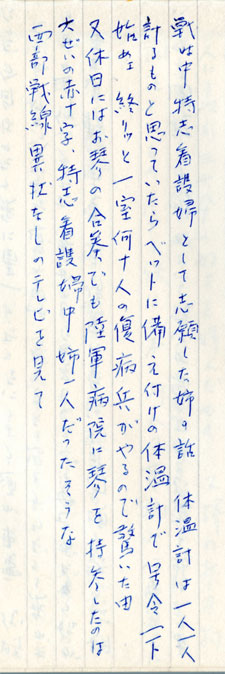 戦時中特志看護婦として志願した姉の話 体温計は一人一人
計るものと思っていたらベットに備え付けの体温計で号令一下
始め 終りッと一室何十人の傷病兵がやるので驚いた由
又休日にはお琴の合奏でも陸軍病院に琴を持参したのは
大ぜいの赤十字、特志看護婦中姉一人だったそうな
西部戦線異状なしのテレビを見て